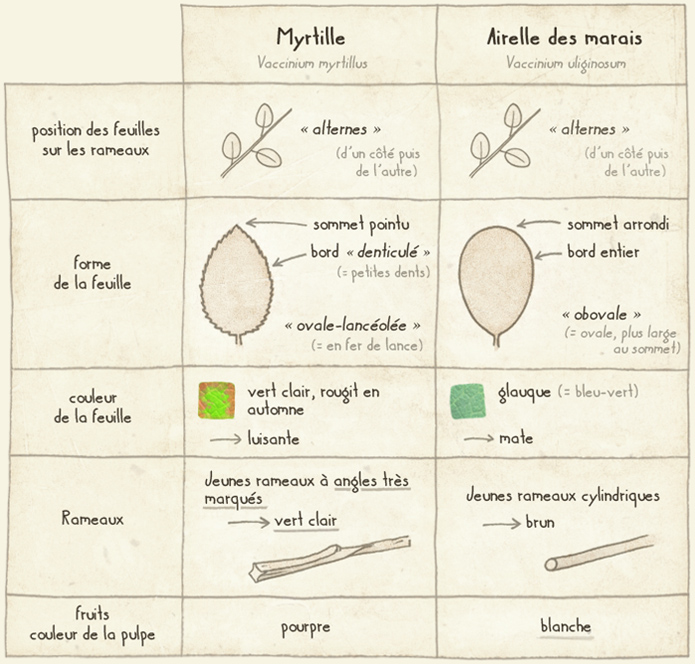 Myrtille
Vaccinium myrtillus
Airelle des marais
Vaccinium uliginosum
position des feuilles
sur les rameaux
« alternes »
(d'un côté puis
de l'autre)
« alternes »
(d'un côté puis
de l'autre)
forme
de la feuille
sommet pointu
bord « denticulé »
(= petites dents)
« ovale-lancéolée »
(= en fer de lance)
sommet arrondi
bord entier
« obovale »
(= ovale, plus large
au sommet)
couleur
de la feuille
vert clair, rougit en
automne
luisante
glauque (= bleu-vert)
mate
Rameaux
Jeunes rameaux à angles très
marqués
vert clair
Jeunes rameaux cylindriques
brun
fruits
couleur de la pulpe
pourpre
blanche